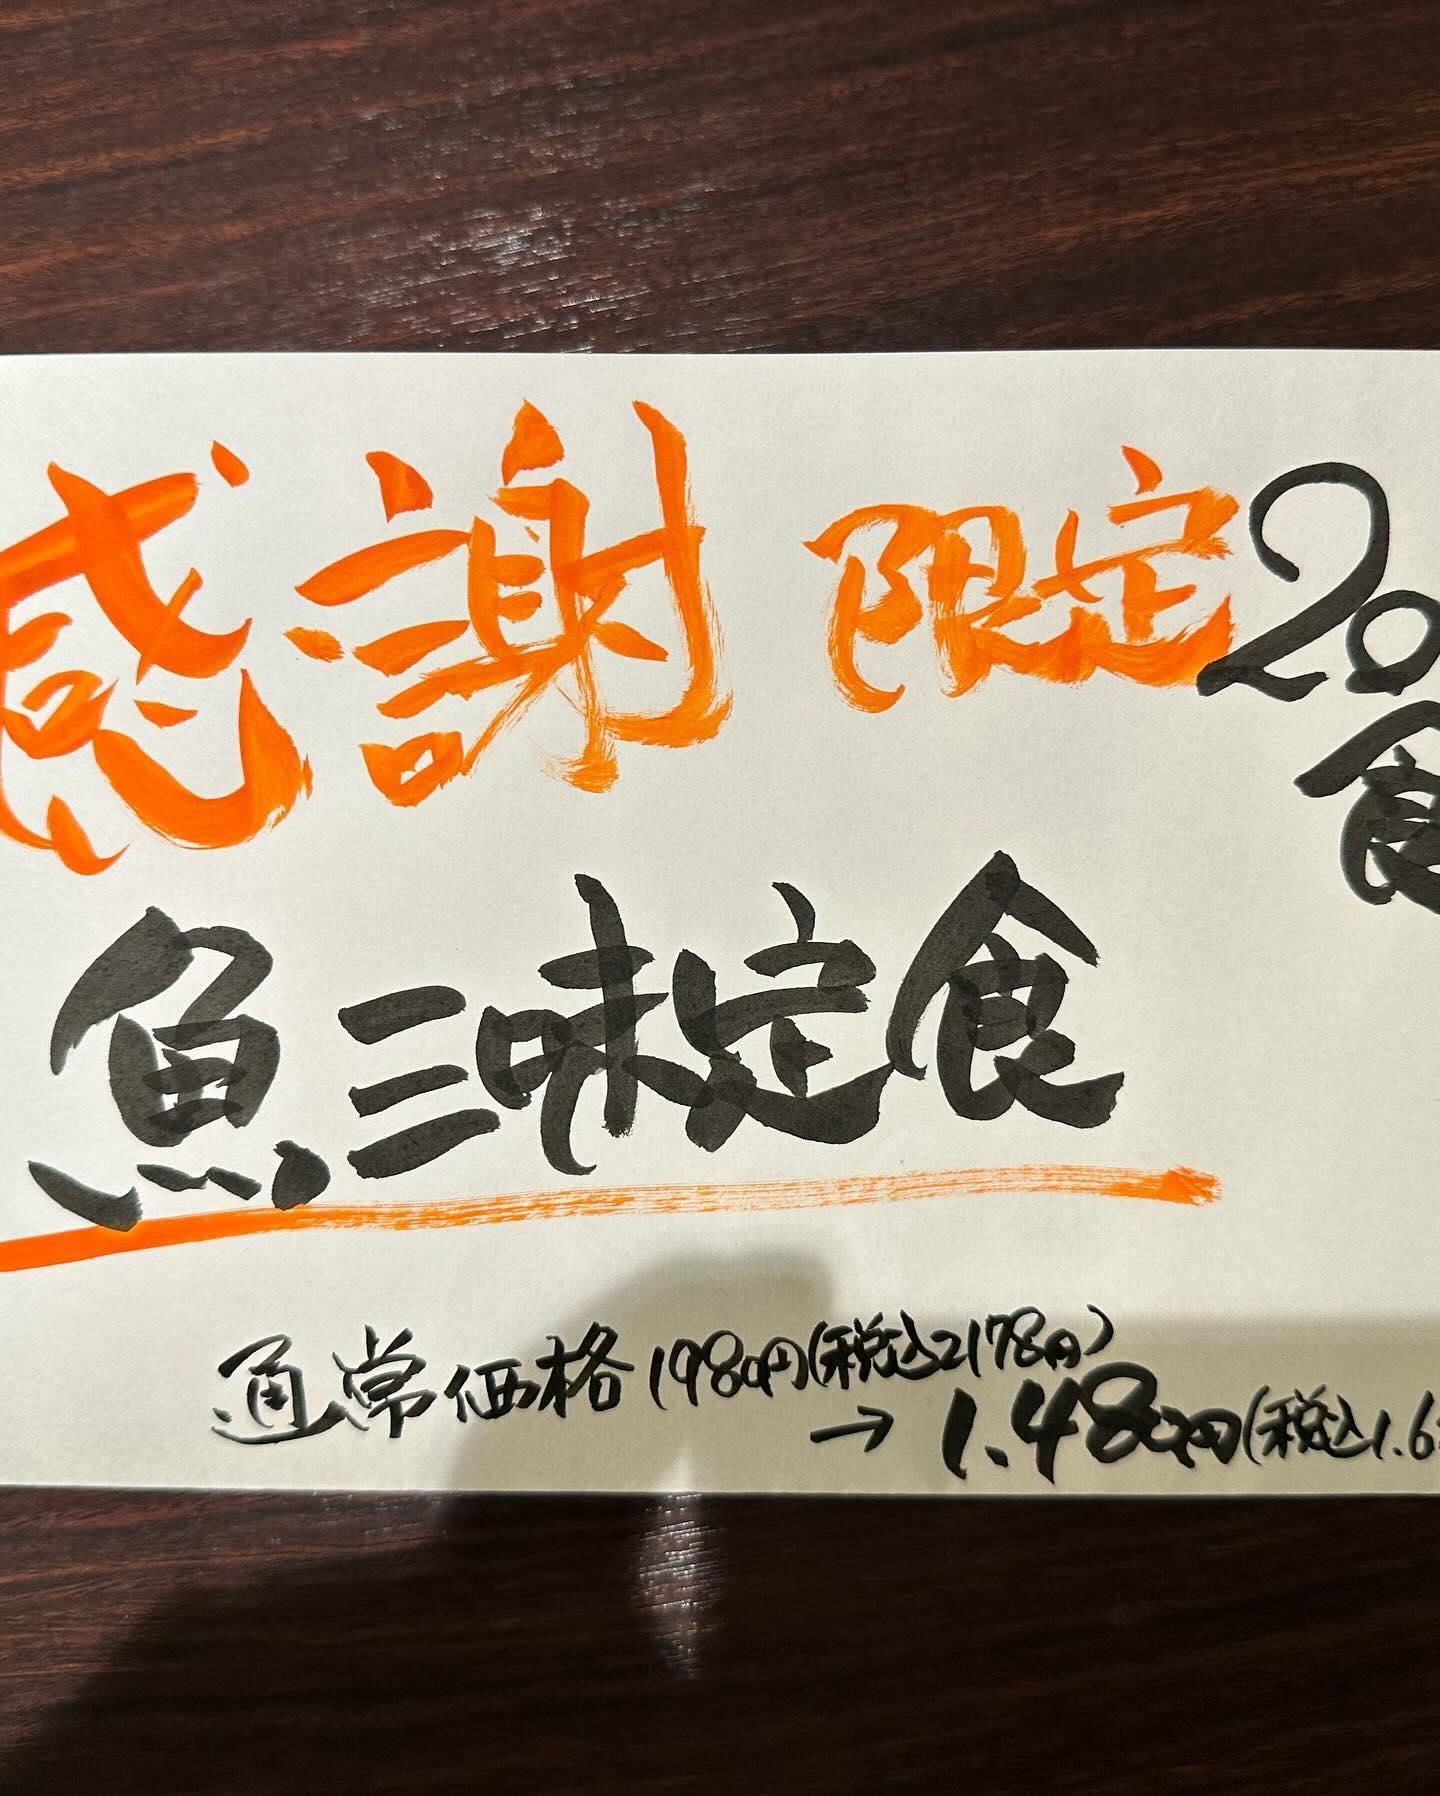 感謝 限定20食
魚三味定食
通常価格1980円(税込2178円)
→1.480円(税込1.6